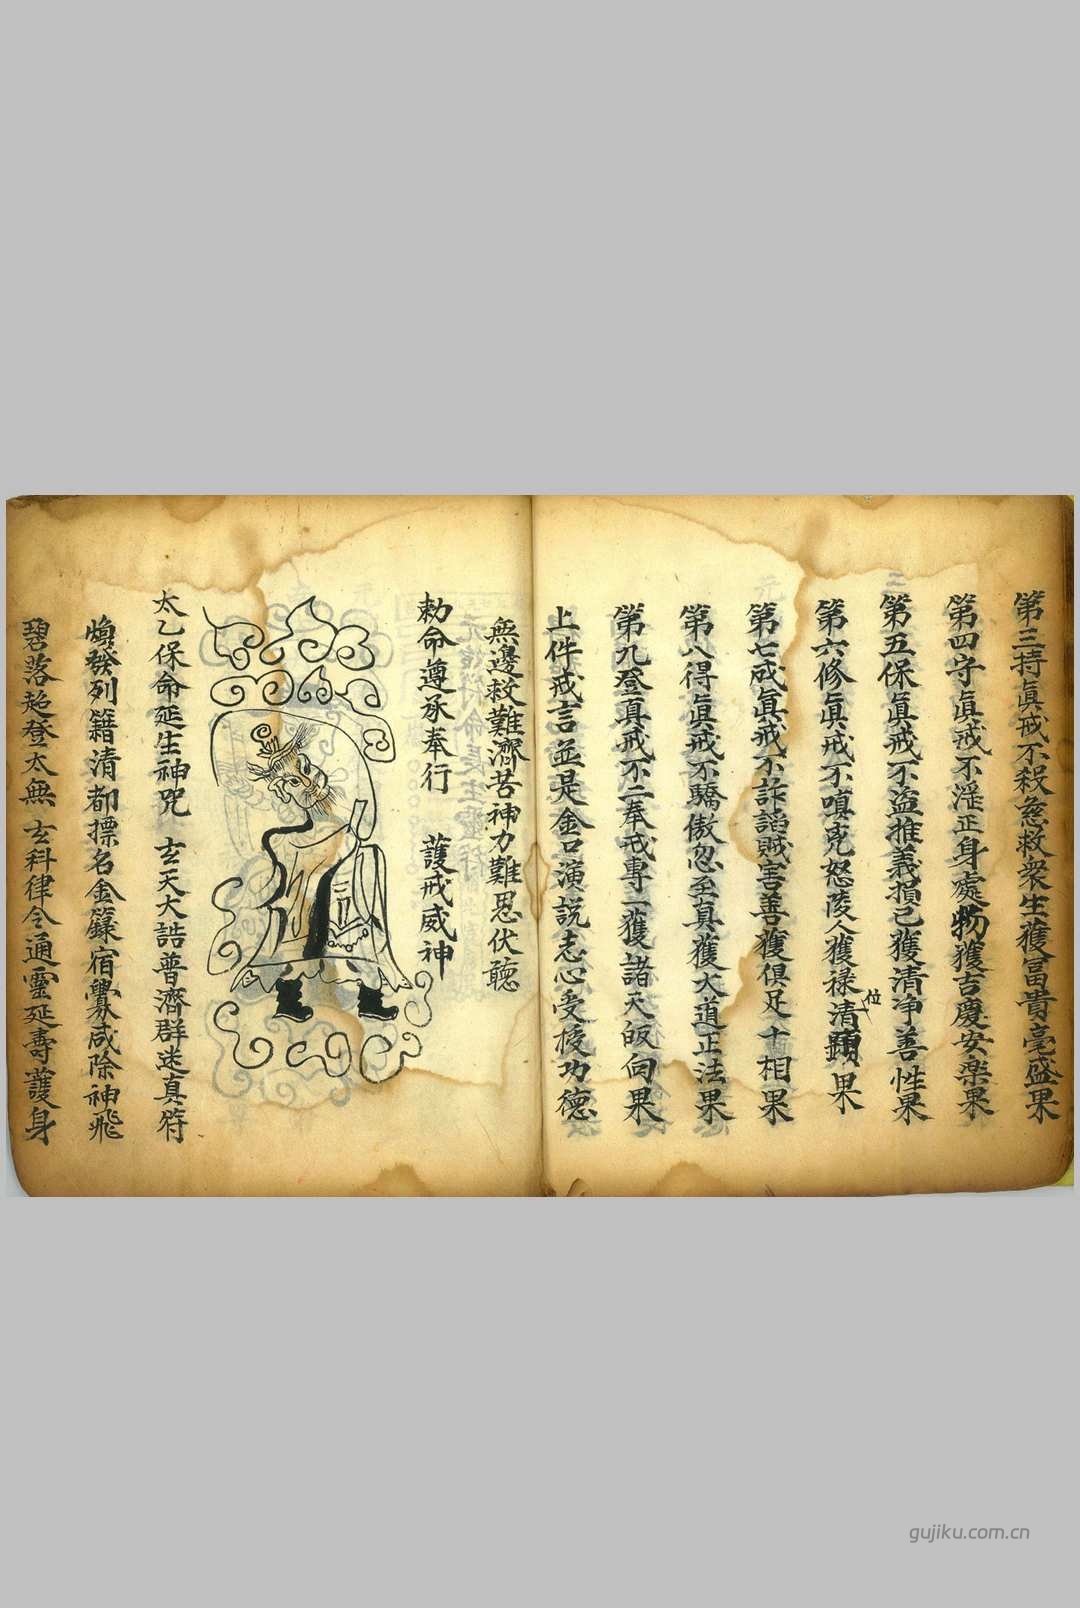 第三持眞戒不殺慈救衆生獲冨貴毫盛果
第四守眞戒不淫正身處物獲吉慶安楽果
第五保眞戒不盜推義損己獲清净善性果
第六修眞戒不嗔兇怒陵人獲禄位清顯果
第七成眞戒不詐謟賊害善獲俱足十相果
第八得眞戒不驕傲忽至真獲大道正法果
第九登真戒不二奉戒專一獲諸天皈向果
上件戒言並是金口演説志心受授功德
無邊救難濟苦神力難思伏聽
勅命遵承奉行 護戒威神
太乙保命延生神咒 玄天大誥普濟群迷真符
煥發列籍清都摽名金籙宿釁咸除神飛
碧落超登太無 玄科律令通靈延壽護身
gujiku.com.cn